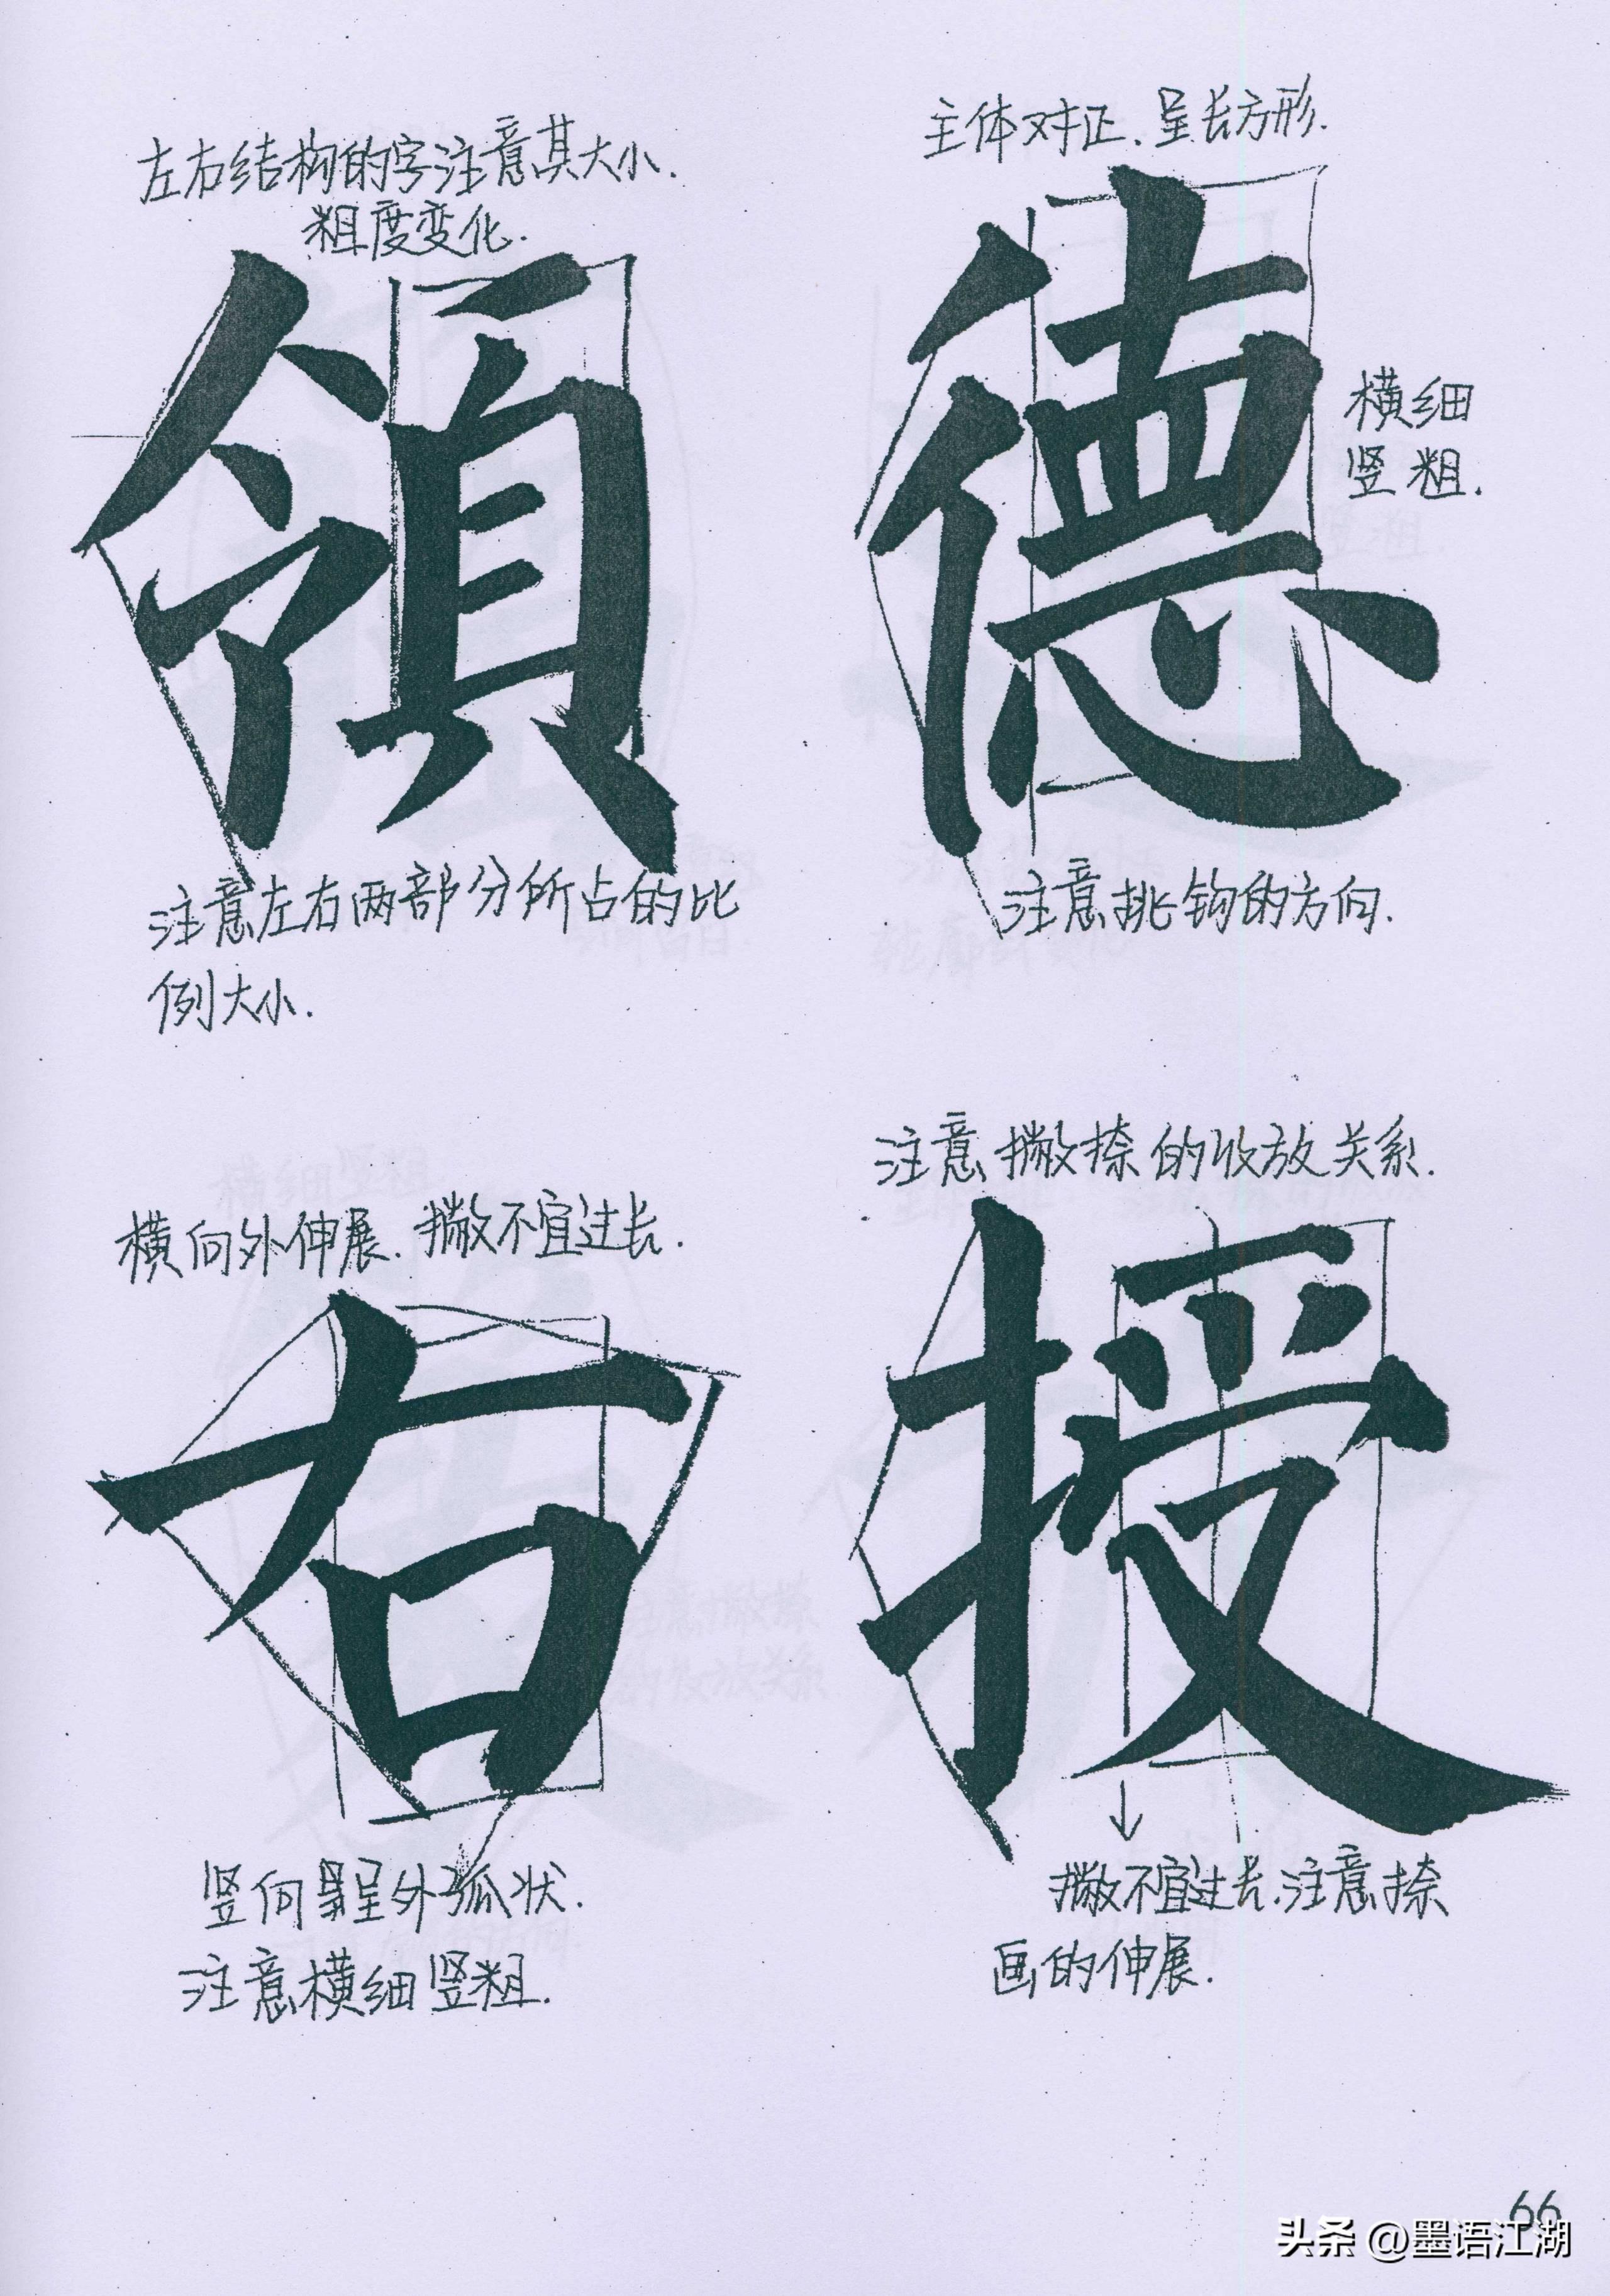 左右结构的字注意其大小.
粗度变化.
領
注意左右两部分所占的比
例大小.
主体对正.呈长方形.
德
横细
竖粗.
注意挑钩的方向.
横向外伸展.撇不宜过长.
右
竖向呈外弧状.
注意横细竖粗.
注意撇捺的收放关系.
授
撇不宜过长.注意捺
画的伸展.
66
头条 @墨语江湖